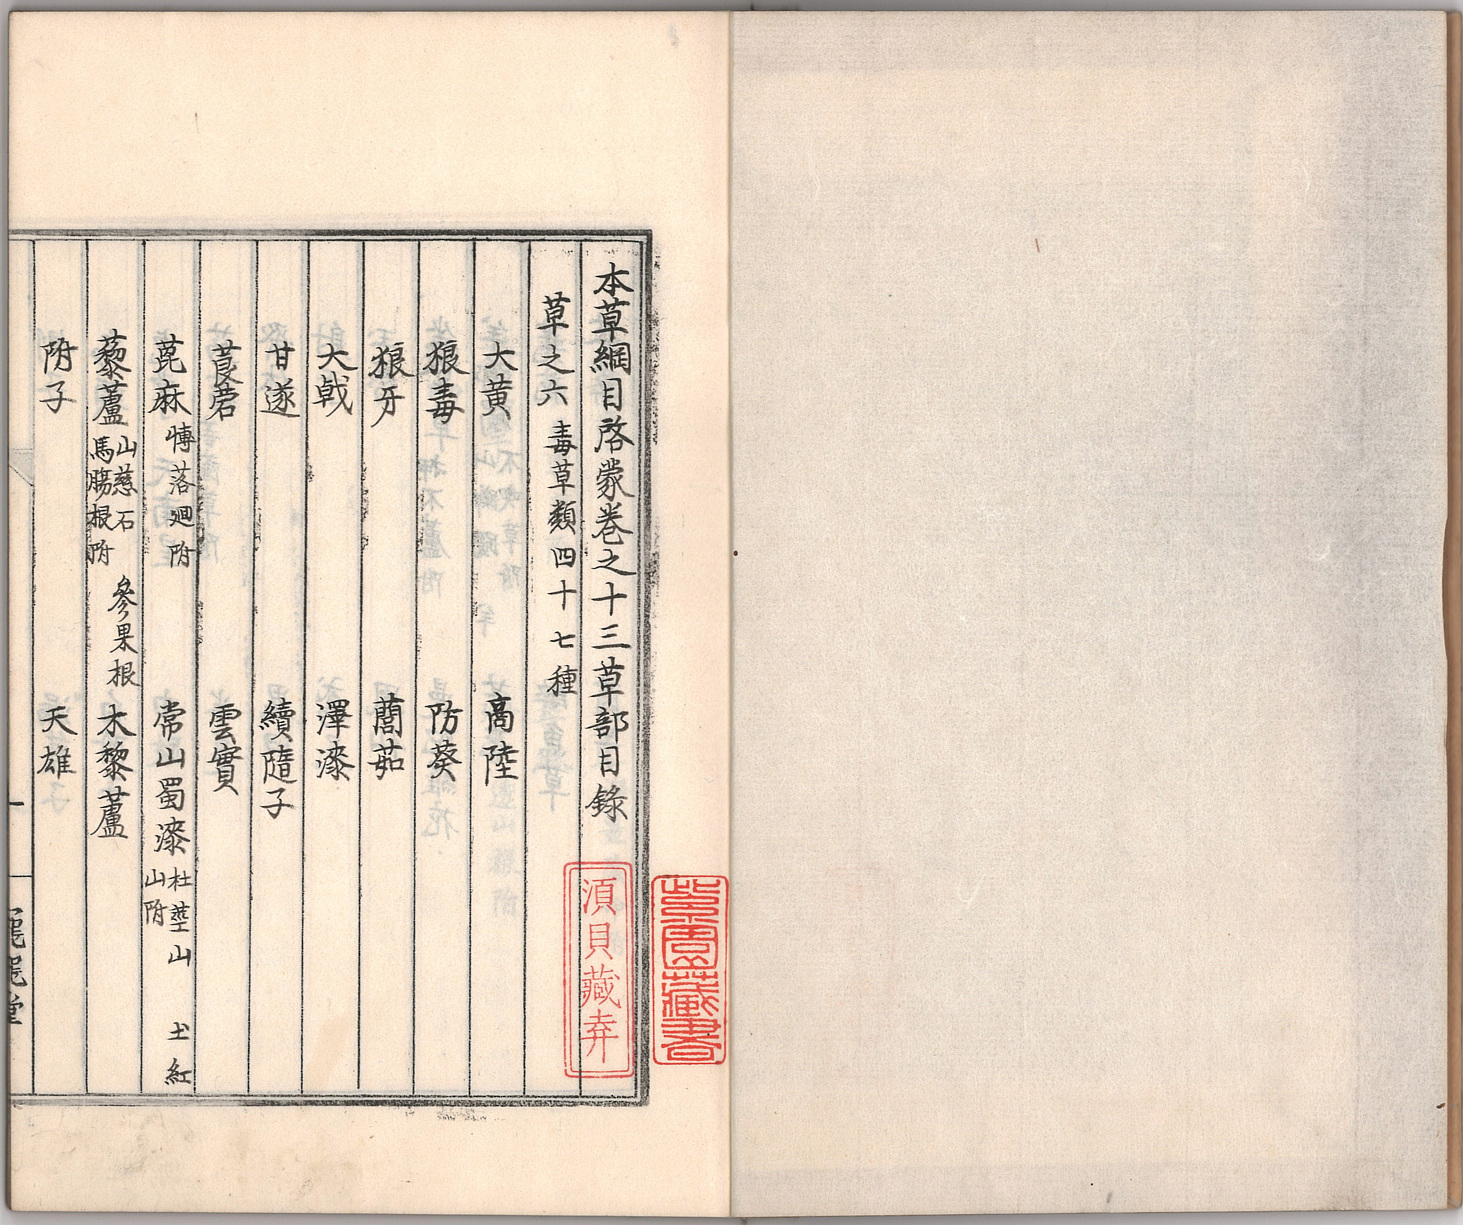 本草綱目啓蒙卷之十三草部目錄
草之六 毒草類四十七種
大黄 商陸
狼毒 防葵
狼牙 䕡茹
大戟 澤漆
甘遂 續隨子
莨菪 雲實
蓖麻 博落廻附 常山蜀漆 杜莖山 土紅山附
藜蘆 山慈石 參果根 馬膓根附 木藜蘆
附子 天雄
一
須貝藏弆
紫雲藏書